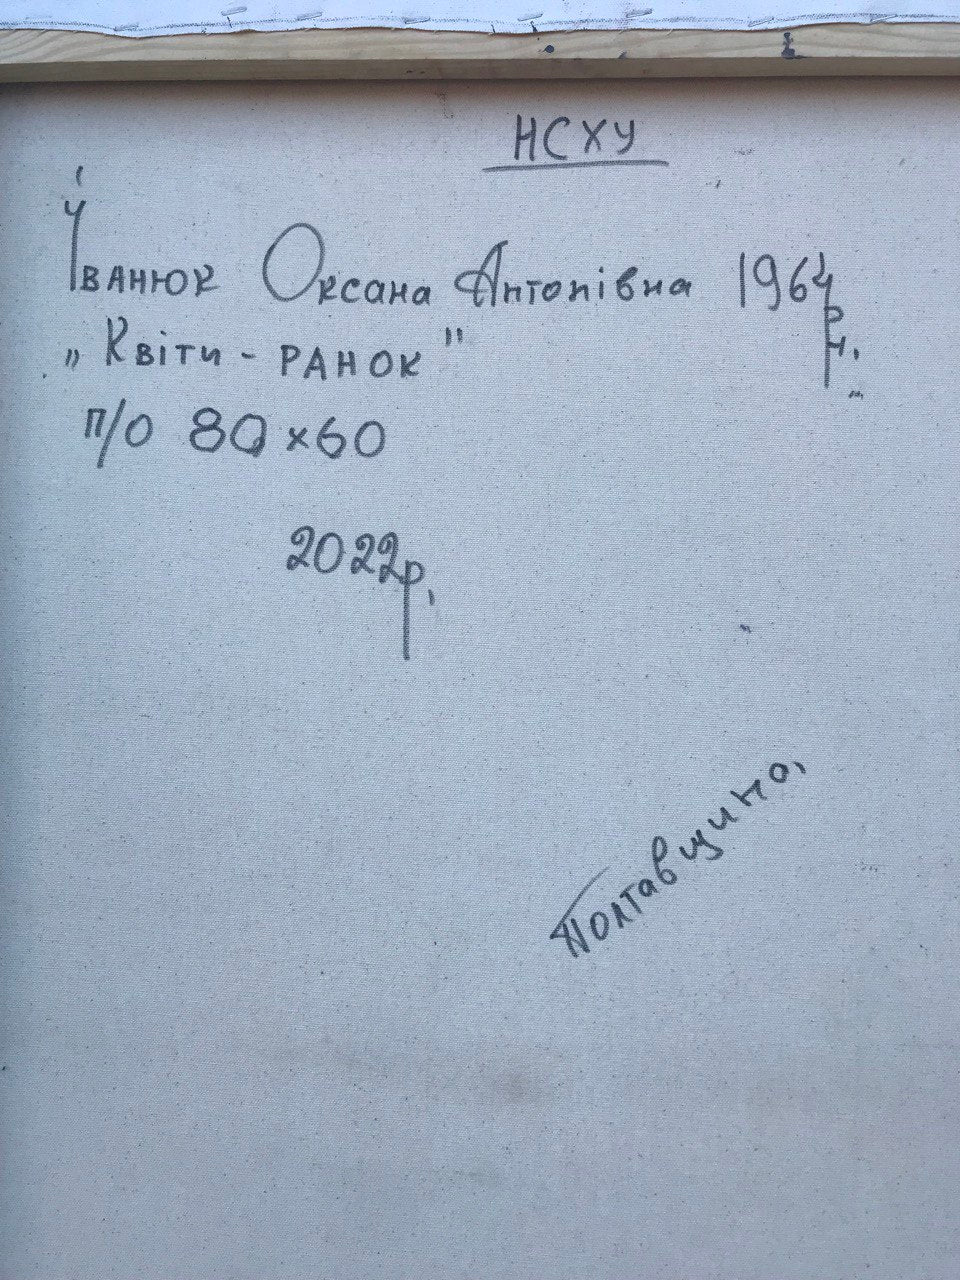 НСХУ
Іванюк Оксана Антонівна 1964
р.н.
„Квіти - РАНОК"
п/о 80х60
2022р.
Полтавщина,